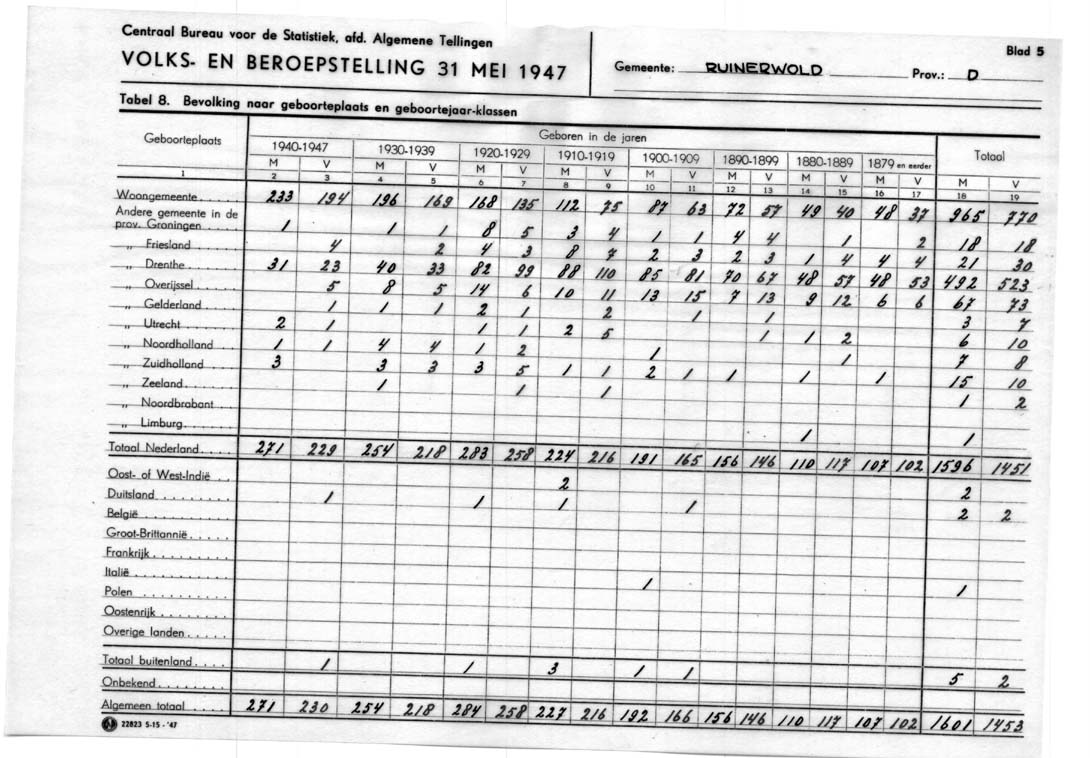 Centraal Bureau voor de Statistiek, afd. Algemene Tellingen
VOLKS- EN BEROEPSTELLING 31 MEI 1947
Gemeente: RUINERWOLD Prov.: D
Blad 5
Tabel 8. Bevolking naar geboorteplaats en geboortejaar-klassen
Geboorteplaats Geboren in de jaren Totaal
1940-1947 1930-1939 1920-1929 1910-1919 1900-1909 1890-1899 1880-1889 1879 en eerder
M V M V M V M V M V M V M V M V M V
1 2 3 4 5 6 7 8 9 10 11 12 13 14 15 16 17 18 19
Woongemeente 233 194 196 169 168 135 112 75 87 63 72 57 49 40 48 37 965 770
Andere gemeente in de
prov. Groningen 1 1 1 8 5 3 4 1 1 4 4 1 2 18 18
„ Friesland 4 2 4 3 8 7 2 3 2 3 1 4 4 4 21 30
„ Drenthe 31 23 40 33 82 99 88 110 85 81 70 67 48 57 48 53 492 523
„ Overijssel 5 8 5 14 6 10 11 13 15 7 13 9 12 6 6 67 73
„ Gelderland 1 1 1 2 1 2 1 1 3 7
„ Utrecht 2 1 1 1 2 5 1 1 2 6 10
„ Noordholland 1 1 4 4 1 2 1 1 7 8
„ Zuidholland 3 3 3 3 5 1 1 2 1 1 1 1 15 10
„ Zeeland 1 1 1 1 2
„ Noordbrabant
„ Limburg 1 1
Totaal Nederland 271 229 254 218 283 258 224 216 191 165 156 146 110 117 107 102 1596 1451
Oost- of West-Indië 2 2
Duitsland 1 1 1 1 2 2
België
Groot-Brittannië
Frankrijk
Italië
Polen 1 1
Oostenrijk
Overige landen
Totaal buitenland 1 1 3 1 1 5 2
Onbekend
Algemeen totaal 271 230 254 218 284 258 227 216 192 166 156 146 110 117 107 102 1601 1453
22823 5-15-'47